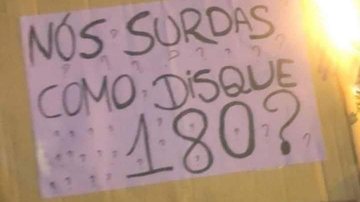 NÓS SURDAS
COMO DISQUE
180?